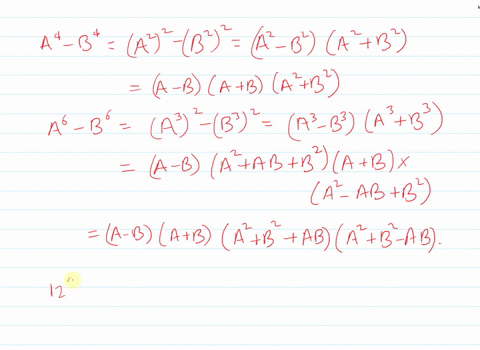 A⁴ - B⁴ = (A²)² - (B²)² = (A² - B²) (A² + B²)
= (A-B) (A+B) (A² + B²)
A⁶ - B⁶ = (A³)² - (B³)² = (A³ - B³) (A³ + B³)
= (A-B) (A² + AB + B²) (A+B) ×
(A² - AB + B²)
= (A-B) (A+B) (A² + B² + AB) (A² + B² - AB).
12